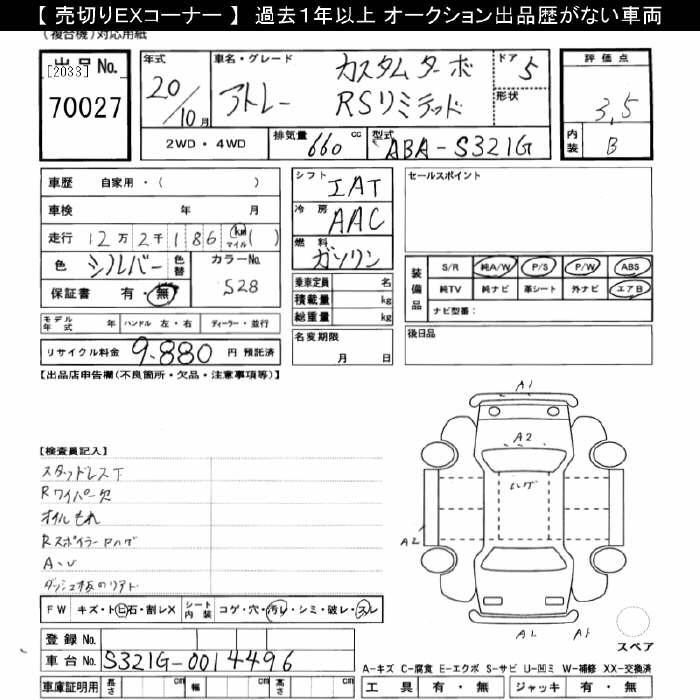 【 売切りEXコーナー 】 過去1年以上 オークション出品歴がない車両
(複合機)対応用紙
出品No.
[2033]
70027
年式
20/10月
車名・グレード
アトレー
カスタムターボ
RSリミテッド
ドア 5
形状
評価点
3,5
内装 B
2WD・4WD
排気量 660 cc
型式 ABA-S321G
車歴 自家用・( )
車検 年 月
走行 12万2千186 (km マイル)( )
色 シルバー 色替
カラーNo. S28
保証書 有・無
モデル年式 年
ハンドル 左・右
ディーラー・並行
リサイクル料金 9.880 円 預託済
シフト IAT
冷房 AAC
燃料 ガソリン
乗車定員 名
積載量 kg
総重量 kg
名変期限
月 日
セールスポイント
装備品
S/R 純A/W P/S P/W ABS
純TV 純ナビ 革シート 外ナビ エアB
ナビ型番:
後日品
【出品店申告欄(不良個所・欠品・注意事項等)】
【検査員記入】
スタッドレス下
Rワイパー欠
オイルもれ
RスポイラーPハゲ
A・U
A1
A2
ハゲ
A2
A1
FW キズ・ト ヒ 石・割レX
シート内装 コゲ・穴・汚レ・シミ・破レ・スレ
登録No.
車台No. S321G-0014496
車庫証明用 長さ cm 幅 cm 高さ cm
スペア
A-キズ C-腐食 E-エクボ S-サビ U-凹ミ W-補修 XX-交換済
工具 有・無 ジャッキ 有・無